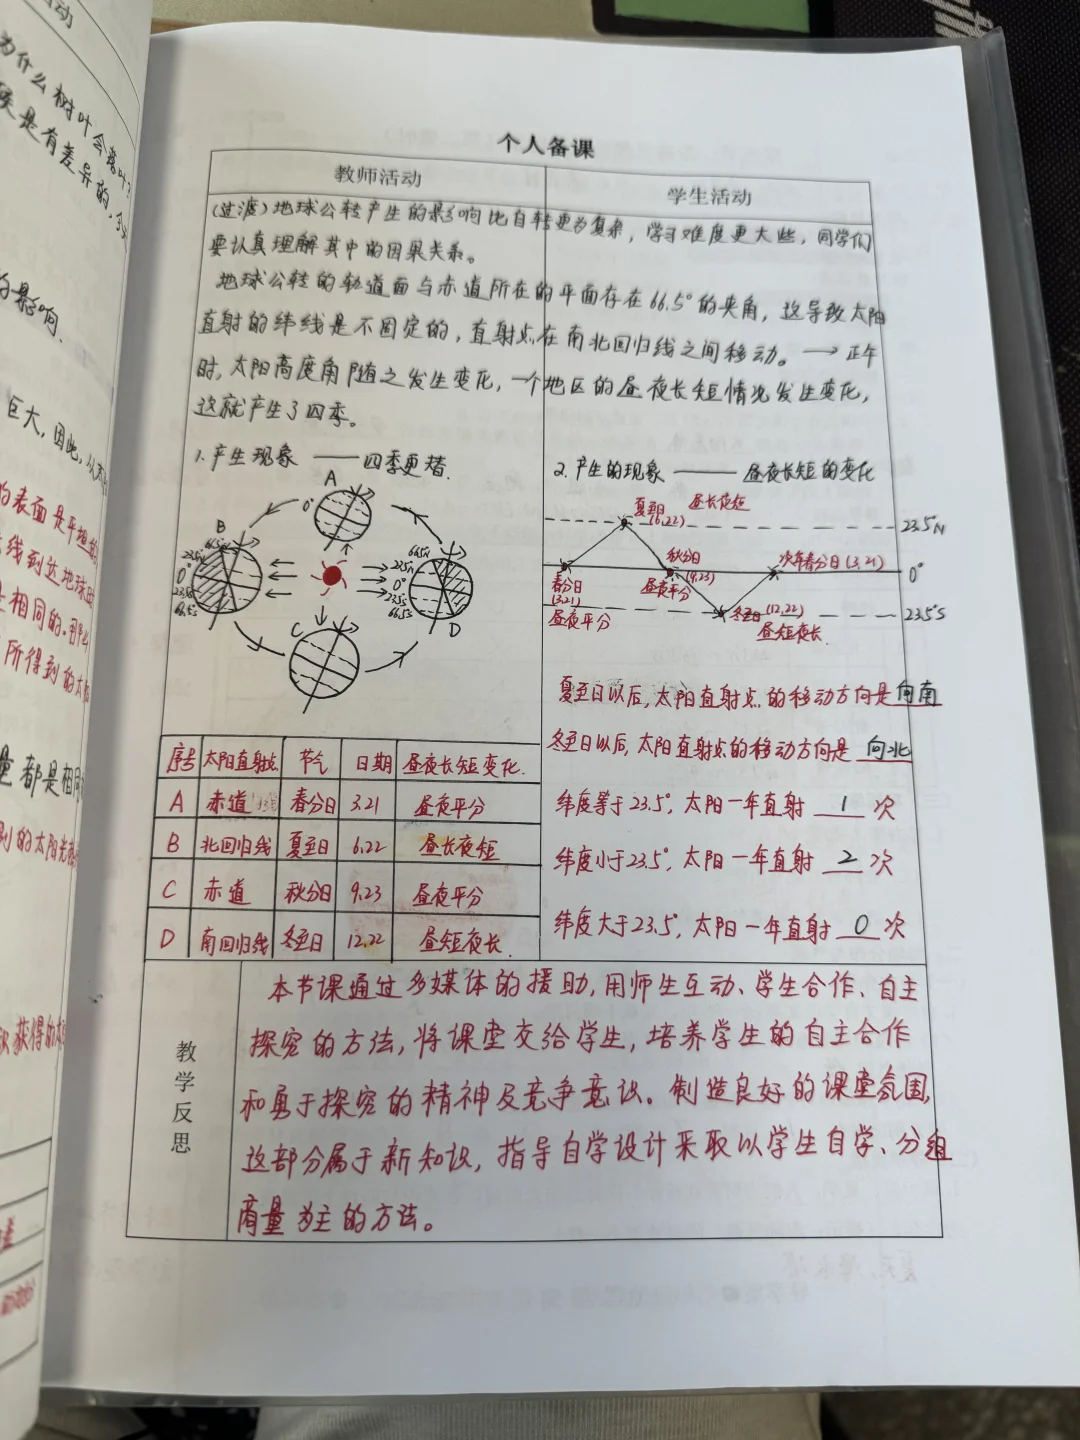 为什么树叶会落叶?
是有差异的,
的影响.
巨大,因此,
的表面是平坦的
线到达地球时
相同的.
所得到的太阳
都是相同
的太阳光
获得的
个人备课
教师活动
学生活动
(过渡)地球公转产生的影响比自转更为复杂,学习难度更大些,同学们
要认真理解其中的因果关系。
地球公转的轨道面与赤道所在的平面存在66.5°的夹角,这导致太阳
直射的纬线是不固定的,直射点在南北回归线之间移动。→正午
时,太阳高度角随之发生变化,一个地区的昼夜长短情况发生变化,
这就产生了四季。
1.产生现象 ——四季更替.
A
0°
B
66.5N
23.5N
0°
23.5S
66.5S
C
66.5N
23.5N
0°
23.5S
66.5S
D
2.产生的现象 —— 昼夜长短的变化
夏至日
(6,22)
昼长夜短
23.5N
春分日
(3,21)
昼夜平分
秋分日
(9,23)
昼夜平分
次年春分日(3,21)
0°
冬至日(12,22)
昼短夜长.
23.5°S
夏至日以后,太阳直射点的移动方向是向南
冬至日以后,太阳直射点的移动方向是 向北
纬度等于23.5°,太阳一年直射 1 次
纬度小于23.5°,太阳一年直射 2 次
纬度大于23.5°,太阳一年直射 0 次
序号 太阳直射点 节气 日期 昼夜长短变化.
A 赤道 春分日 3.21 昼夜平分
B 北回归线 夏至日 6.22 昼长夜短
C 赤道 秋分日 9.23 昼夜平分
D 南回归线 冬至日 12.22 昼短夜长.
教学反思
本节课通过多媒体的援助,用师生互动、学生合作、自主
探究的方法,将课堂交给学生,培养学生的自主合作
和勇于探究的精神及竞争意识。制造良好的课堂氛围,
这部分属于新知识,指导自学设计采取以学生自学、分组
商量为主的方法。